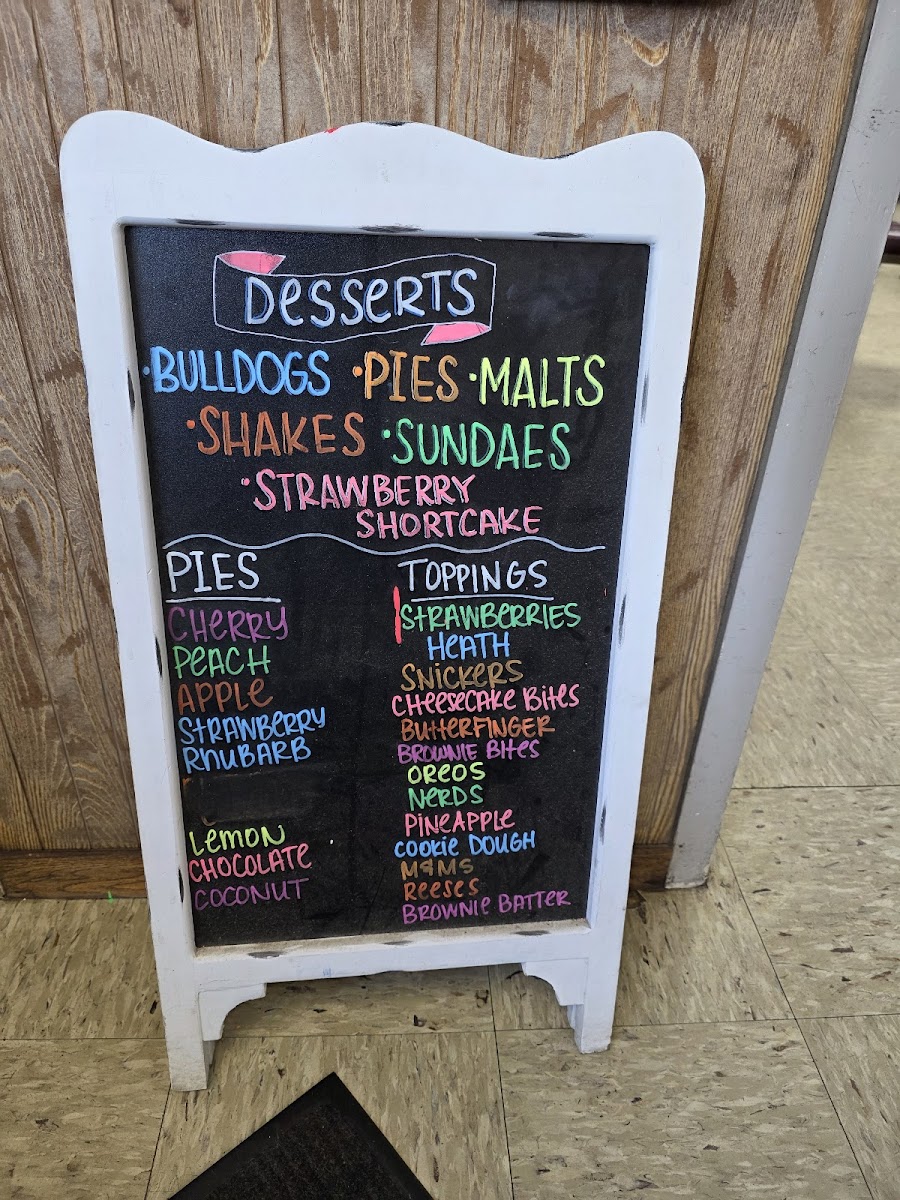 Desserts
•BULLDOGS •PIES •MALTS
•SHAKES •SUNDAES
•STRAWBERRY
SHORTCAKE
PIES
CHERRY
PEACH
APPLE
STRAWBERRY
RHUBARB
LEMON
CHOCOLATE
COCONUT
TOPPINGS
STRAWBERRIES
HEATH
SNICKERS
CHEESECAKE BITES
BUTTERFINGER
BROWNIE BITES
OREOS
NERDS
PINEAPPLE
COOKIE DOUGH
M&MS
REESES
BROWNIE BATTER